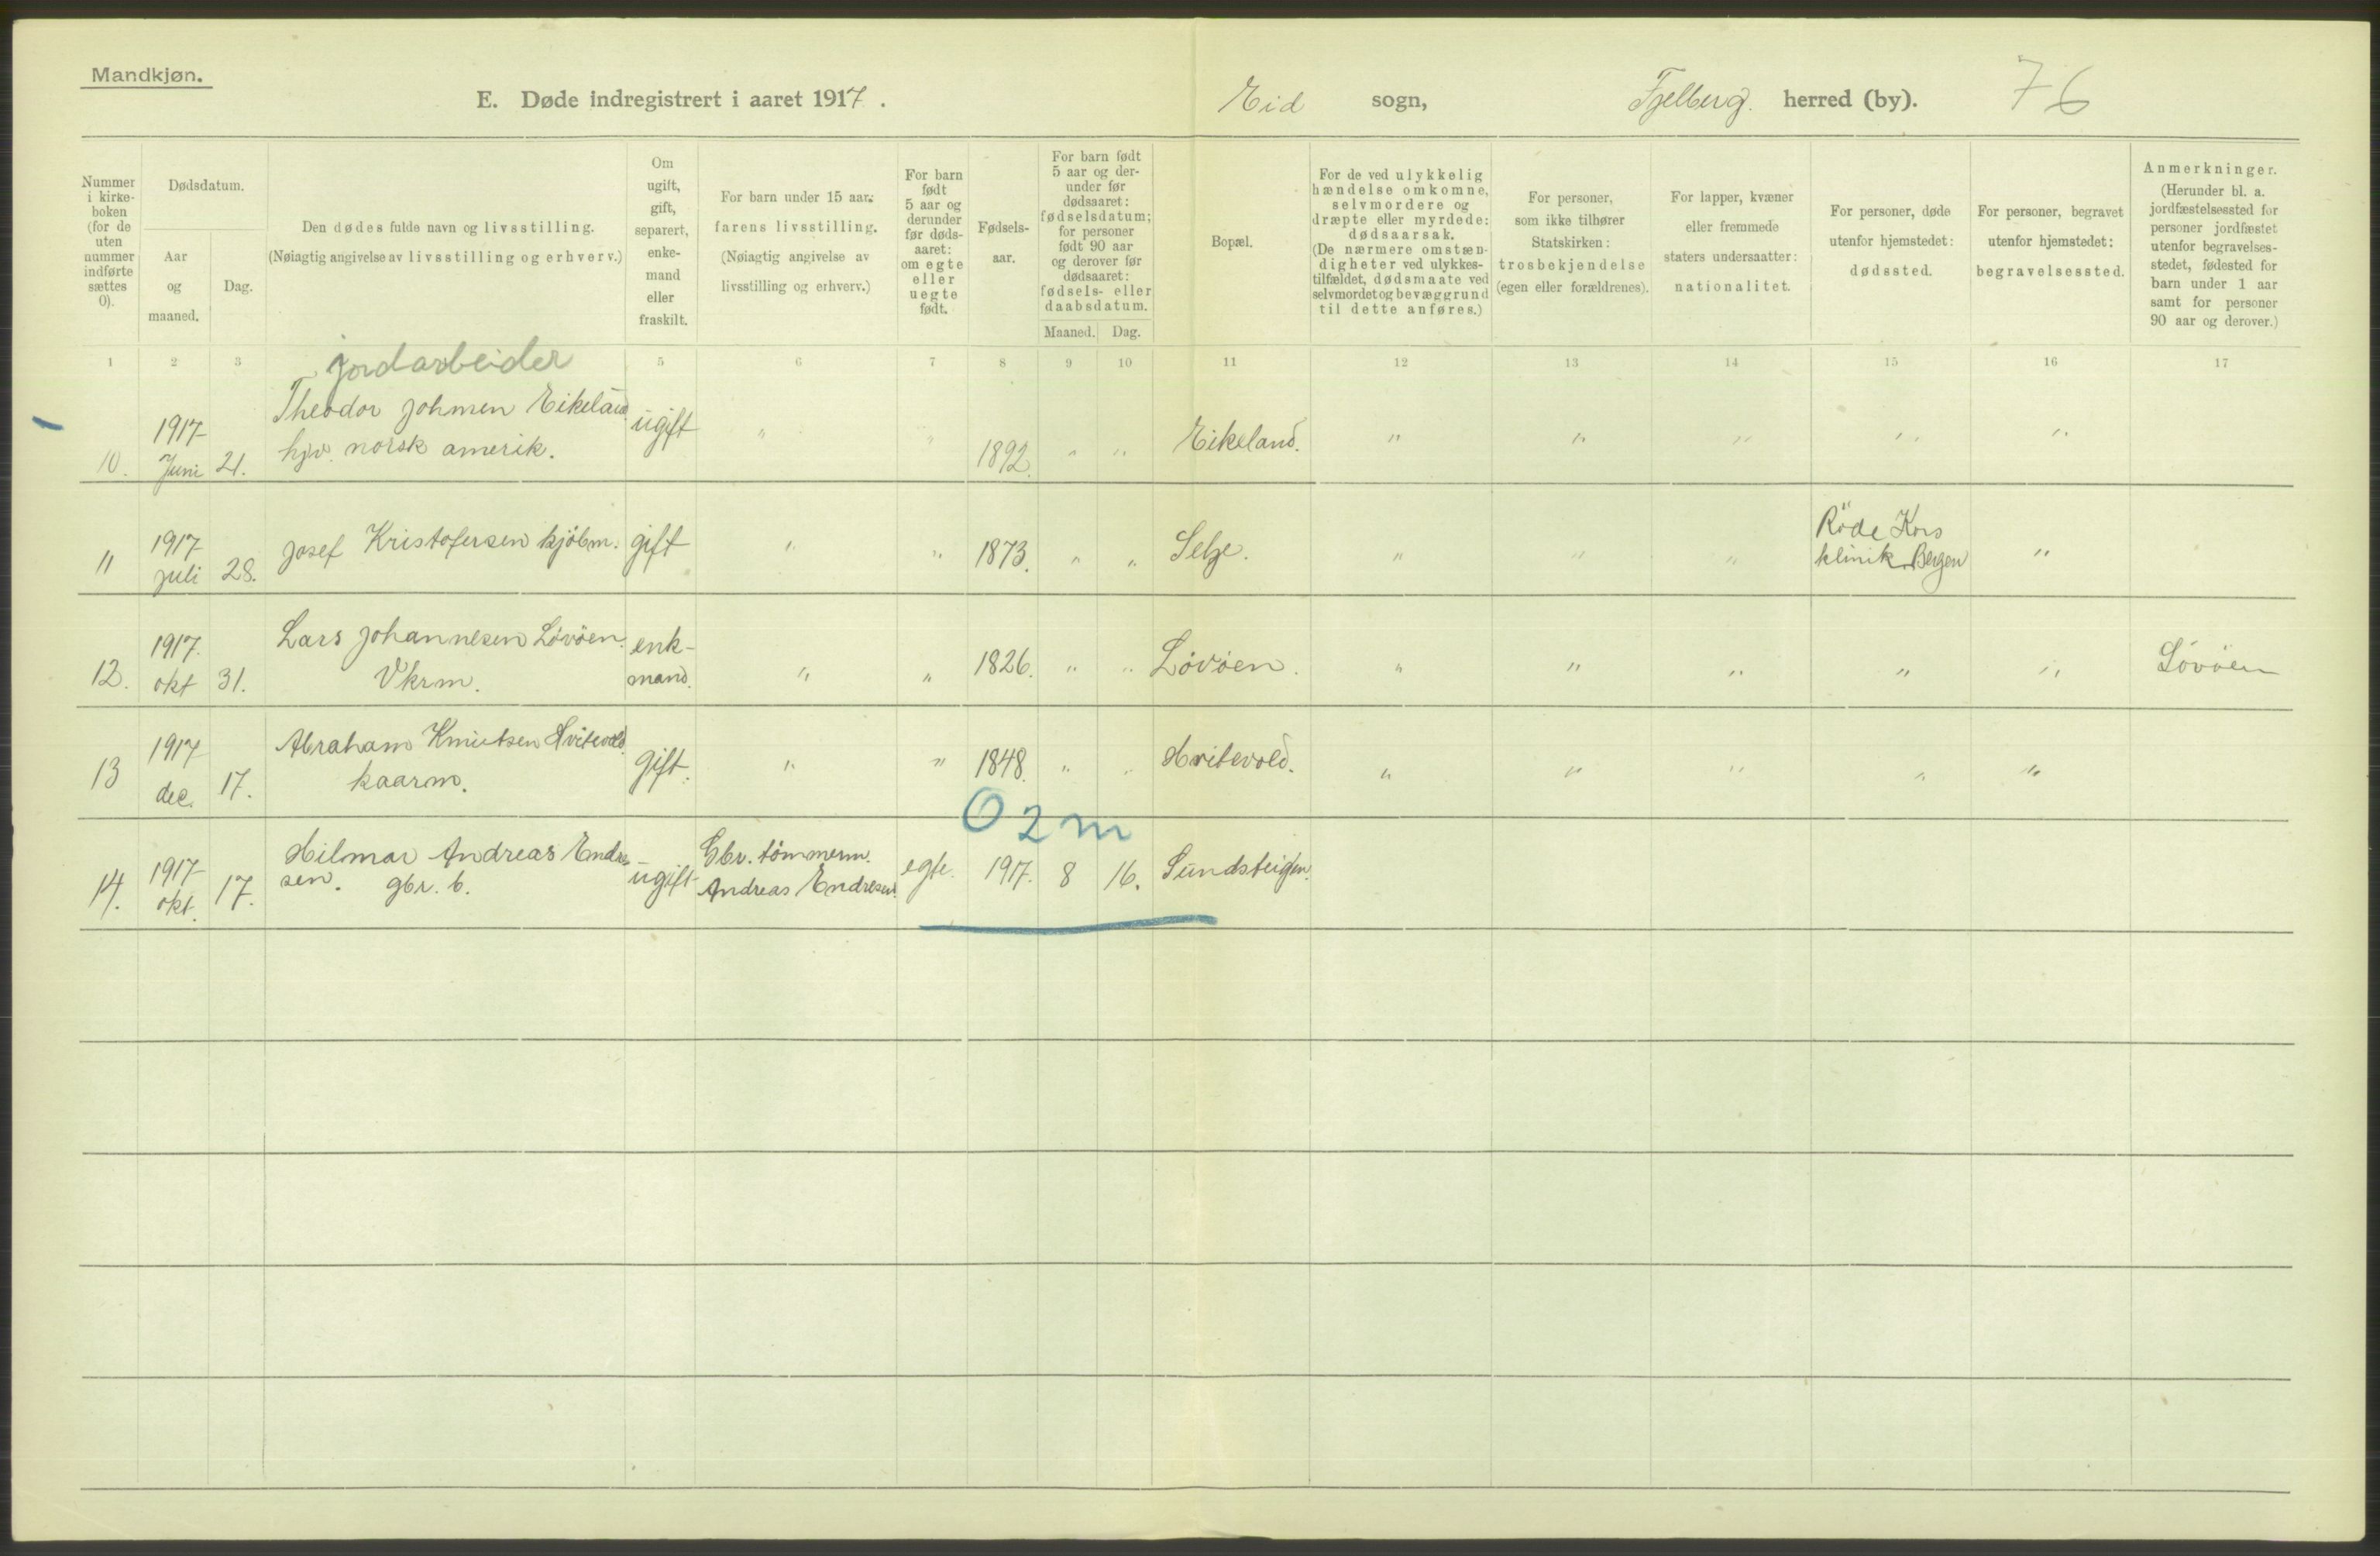 Mandkjøn.
E. Døde indregistrert i aaret 1917. Eid sogn, Fjelberg. herred (by). 76
Nummer i kirke-boken (for de uten nummer indførte sættes 0).
Dødsdatum.
Aar og maaned.
Dag.
Den dødes fulde navn og livsstilling.
(Nøiagtig angivelse av livsstilling og erhverv.)
Om ugift, gift, separert, enke-mand eller fraskilt.
For barn under 15 aar:
farens livsstilling.
(Nøiagtig angivelse av livsstilling og erhverv.)
For barn født 5 aar og derunder før døds-aaret: om egte eller uegte født.
Fødsels-aar.
For barn født 5 aar og der-under før dødsaaret: fødselsdatum; for personer født 90 aar og derover før dødsaaret: fødsels- eller daabsdatum.
Maaned. Dag.
Bopæl.
For de ved ulykkelig hændelse omkomne, selvmordere og dræpte eller myrdede: dødsaarsak.
(De nærmere omstæn-digheter ved ulykkes-tilfældet, dødsmaate ved selvmordet og bevæggrund til dette anføres.)
For personer, som ikke tilhører Statskirken: trosbekjendelse (egen eller forældrenes).
For lapper, kvæner eller fremmede staters undersaatter: nationalitet.
For personer, døde utenfor hjemstedet: dødssted.
For personer, begravet utenfor hjemstedet: begravelsessted.
Anmerkninger.
(Herunder bl. a. jordfæstelsessted for personer jordfæstet utenfor begravelses-stedet, fødested for barn under 1 aar samt for personer 90 aar og derover.)
1 2 3 5 6 7 8 9 10 11 12 13 14 15 16 17
jordarbeider
Theodor Johnsen Eikeland
10. 1917 Juni 21. hjv. norsk amerik. ugift " " 1892. " " Eikeland. " " " " "
11 1917 juli 28. Josef Kristofersen kjöbm. gift " " 1873. " " Selje. " " " Röde Kors klinik Bergen "
12. 1917. okt 31. Lars Johannesen Lövöen. Vkrm. enk-mand. " " 1826. " " Lövöen. " " " " " Lövöen
13 1917 dec. 17. Abraham Knutsen Hvitevold. kaarm. gift. " " 1848. " " Hvitevold. " " " " "
0 2 m
14. 1917 okt. 17. Hilmar Andreas Endre-sen. gbr. b. ugift Gbr. tömmerm. Andreas Endresen. egte. 1917. 8 16. Sundsteigen.